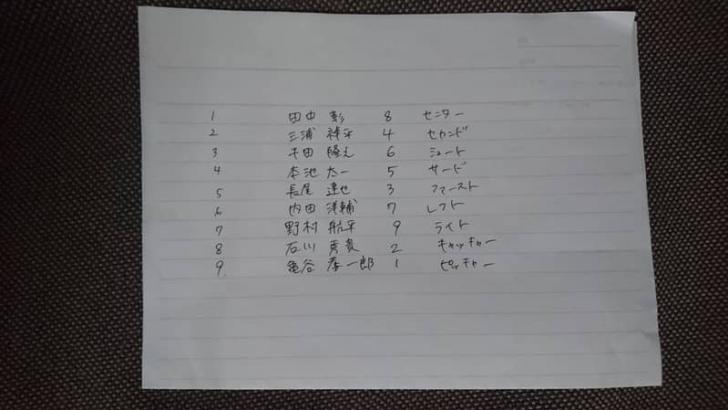 1 田中 彰 8 センター
2 三浦 祥平 4 セカンド
3 本田 隆之 6 ショート
4 本池 太一 5 サード
5 長尾 達也 3 ファースト
6 内田 洋輔 7 レフト
7 野村 航平 9 ライト
8 石川 秀貴 2 キャッチャー
9. 亀谷 孝一郎 1 ピッチャー